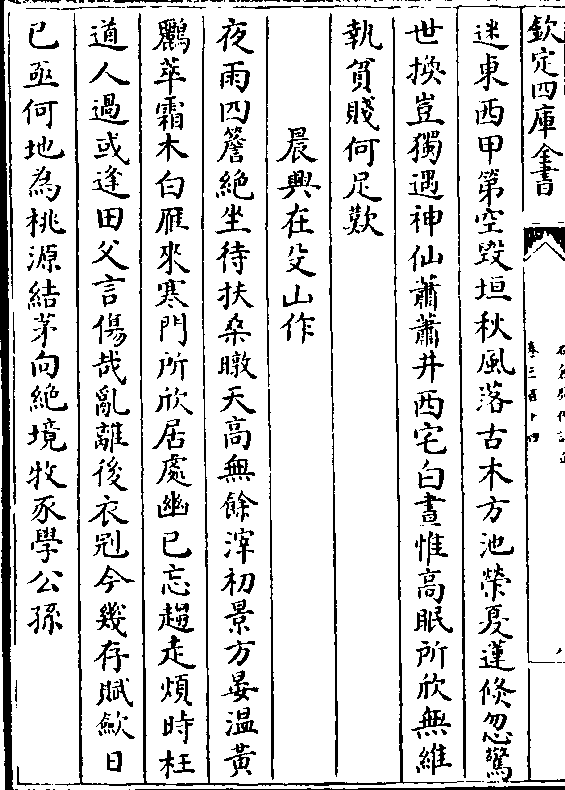 欽定四庫全書
卷三百十四
迷東西甲第空毀垣秋風落古木方池榮夏蓮倐忽驚
世換豈獨遇神仙蕭蕭井西宅白晝惟高眠所欣無維
執貧賤何足歎
晨興在殳山作
夜雨四簷絶坐待扶桑暾天高無餘滓初景方晏溫黄
鸝萃霜木白雁來寒門所欣居處幽已忘趨走煩時枉
道人過或逢田父言傷哉亂離後衣冠今幾存賦歛日
已亟何地為桃源結茅向絶境牧豕學公孫